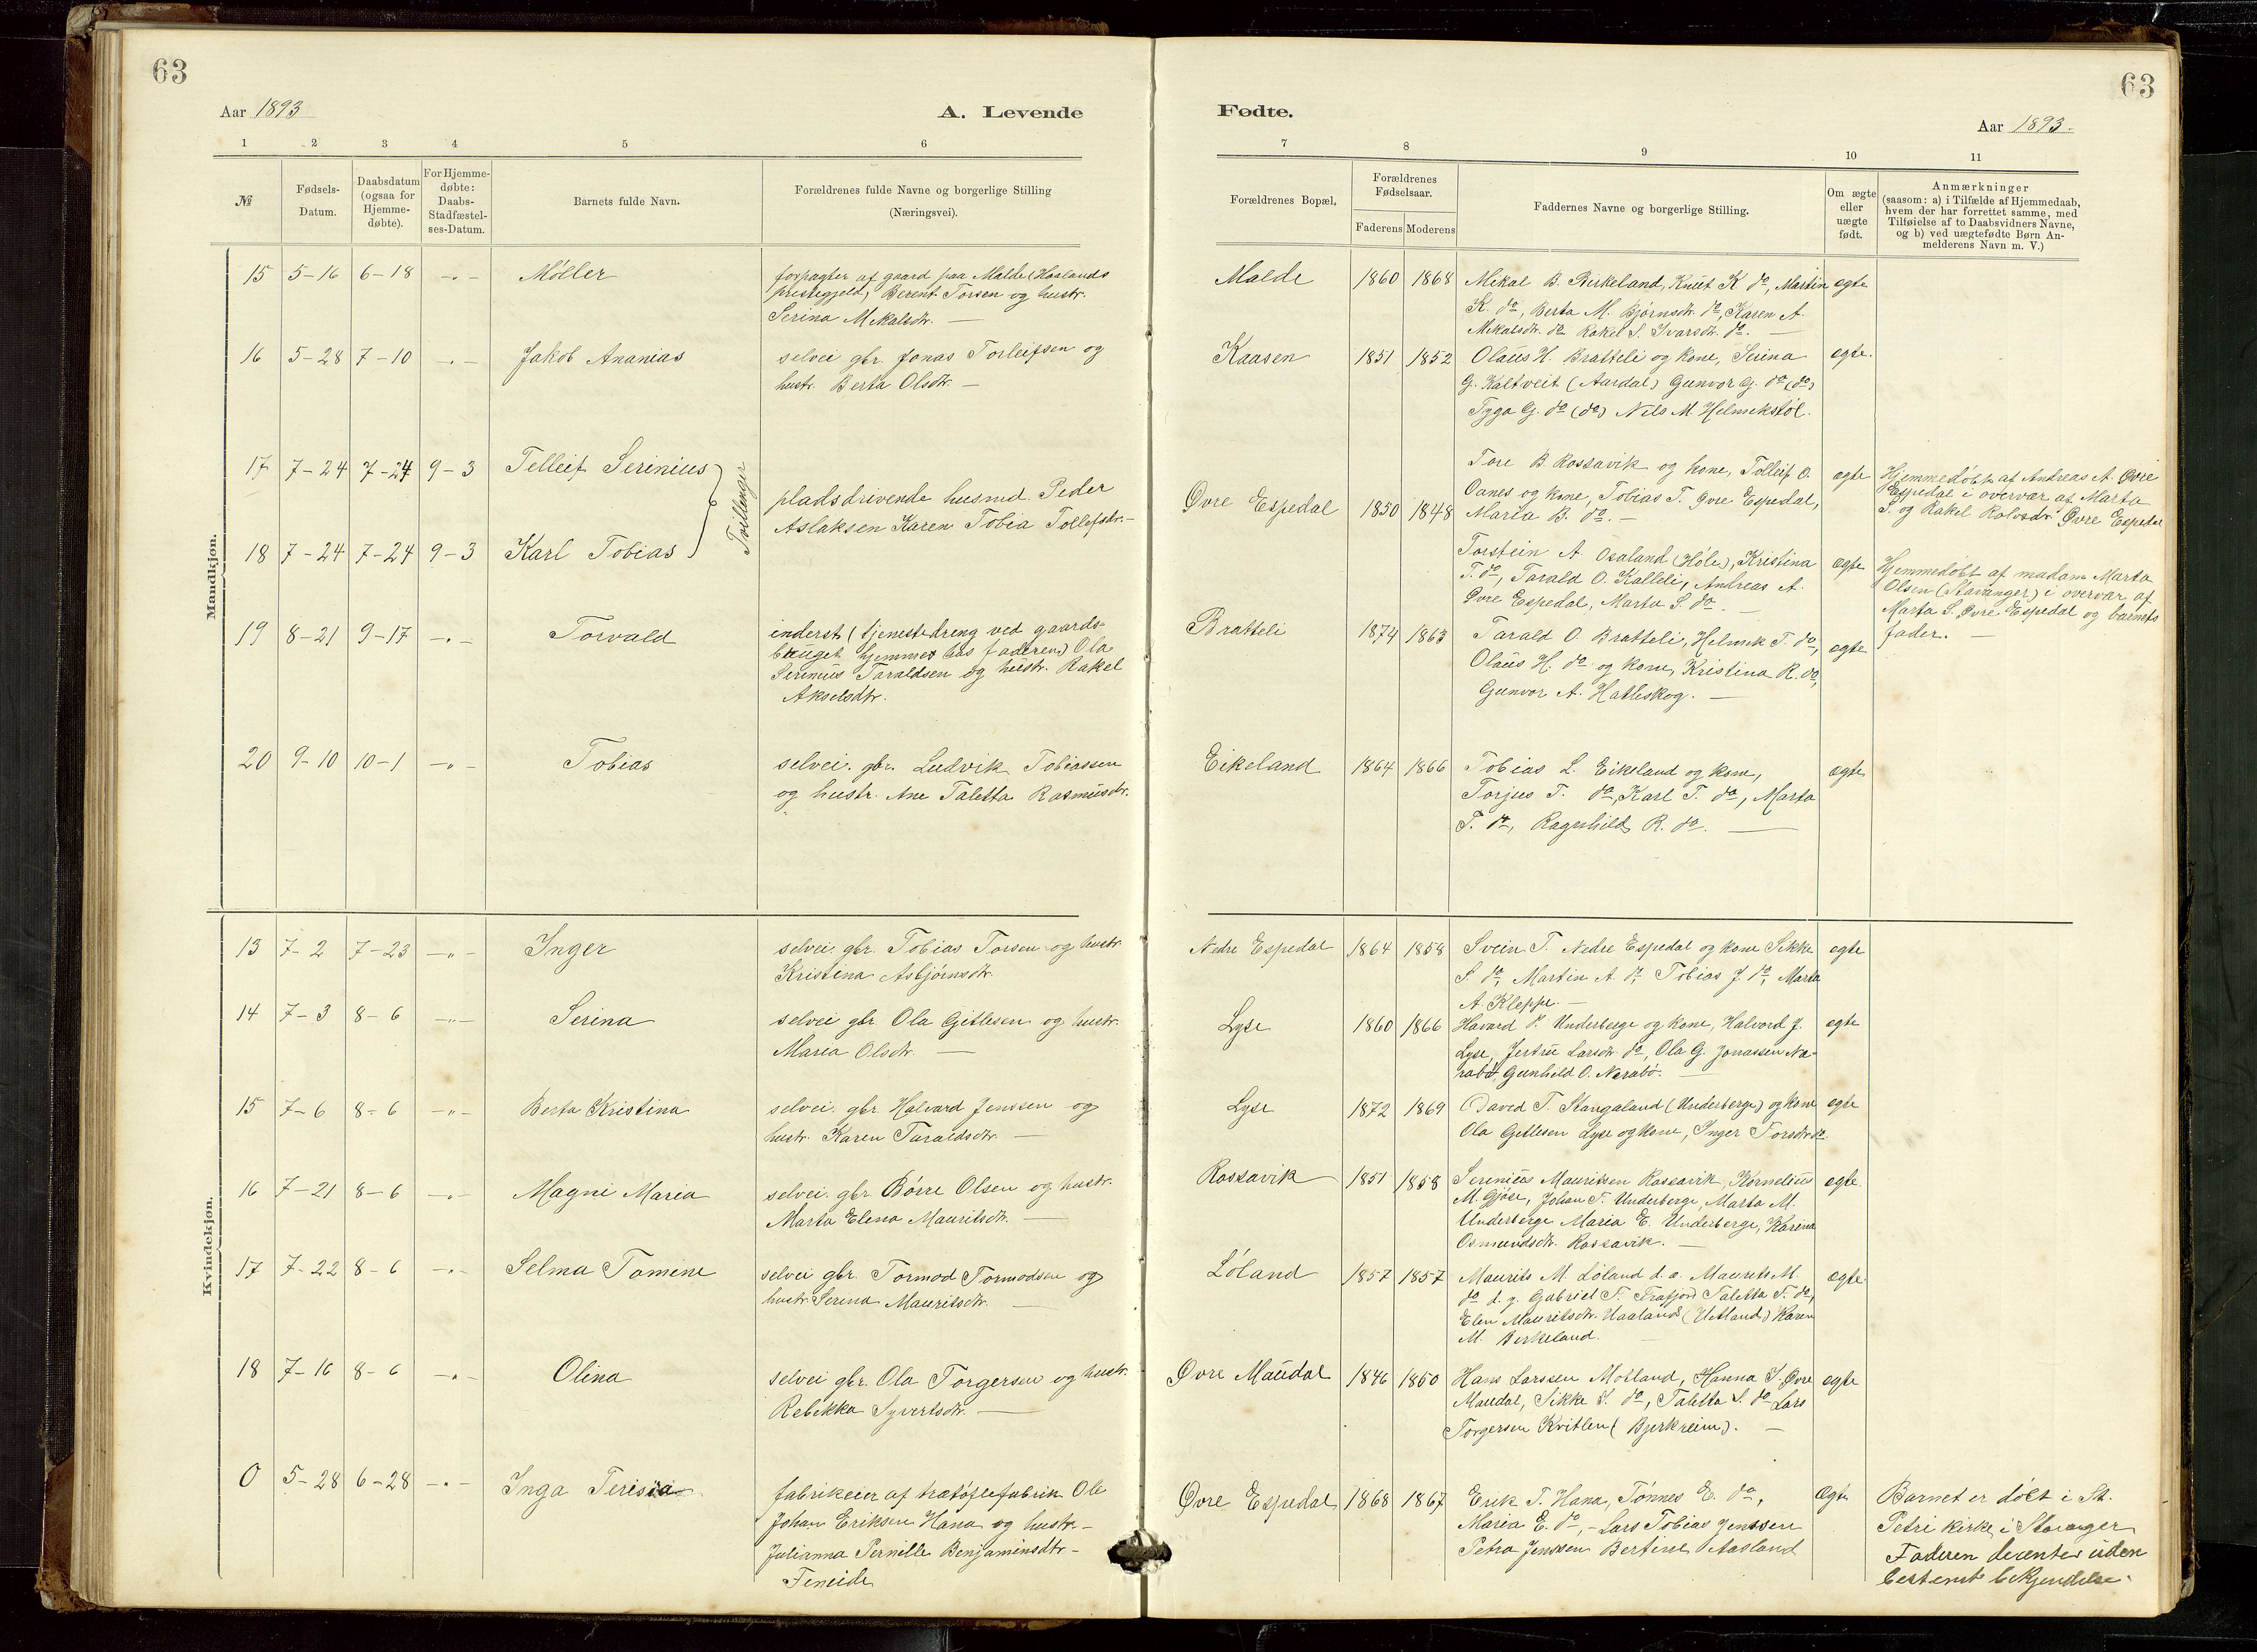 63
63
Aar 1893
A. Levende
Fødte.
Aar 1893
1 2 3 4 5 6
7 8 9 10 11
№
Fødsels-Datum.
Daabsdatum (ogsaa for Hjemme-døbte).
For Hjemme-døbte: Daabs-Stadfæstel-ses-Datum.
Barnets fulde Navn.
Forældrenes fulde Navne og borgerlige Stilling (Næringsvei).
Forældrenes Bopæl.
Forældrenes Fødselsaar.
Faderens Moderens
Faddernes Navne og borgerlige Stilling.
Om ægte eller uægte født.
Anmærkninger (saasom: a) i Tilfælde af Hjemmedaab, hvem der har forrettet samme, med Tilføielse af to Daabsvidners Navne, og b) ved uægtefødte Børn Anmelderens Navn m. V.)
Mandkjøn.
15 5-16 6-18 -"- Møller
forpagter af gaard paa Malde (Haslands
prestegjeld) Berent Torsen og hustr.
Serina Mikalsdtr. —
Malde 1860 1868
Mikal B. Birkeland, Knut K do, Martin
K. do, Berta M. Bjørnsdtr. do, Karen A.
Mikalsdtr. do Rakel S. Ivarsdtr. do. —
egte
16 5-28 7-10 -"- Jakob Ananias
selvei gbr. Jonas Torleifsen og
hustr. Berta Olsdtr. —
Kaasen 1851 1852
Olaus H. Bratteli og kone, Serina
G. Kaltveit (Aardal) Gunvor G. do (do)
Tyga G. do (do) Nils M. Helmikstøl.
egte.
17 7-24 7-24 9-3 Telleif Serinius
Tvillinger
pladsdrivende husmd. Peder
Aslaksen Karen Tobia Tollefsdtr. -
Øvre Espedal 1850 1848
Tore B. Rossavik og kone, Tolleif O.
Oanes og kone, Tobias T. Øvre Espedal,
Marta B. do. —
egte
Hjemmedøbt af Andreas A. Øvre
Espedal i overvær af Marta
S. og Rakel Rolvsdtr. Øvre Espedal
18 7-24 7-24 9-3 Karl Tobias
Torstein A. Osaland (Høle), Kristina
T. do, Tarald O. Kallali, Andreas A.
Øvre Espedal, Marta S. do. —
egte
Hjemmedøbt af madam Marta
Olsen (Stavanger) i overvær af
Marta S. Øvre Espedal og barnets
fader. —
19 8-21 9-17 -"- Torvald
inderst (tjenestedreng ved gaards-
bruget hjemme hos faderen) Ola
Serinius Taraldsen og hustr. Rakel
Akselsdtr.
Bratteli 1874 1863
Tarald O. Bratteli, Helmik T. do,
Olaus H. do og kone, Kristina R. do,
Gunvor A. Hatleskog. —
egte
20 9-10 10-1 -"- Tobias
selvei. gbr. Ludvik Tobiassen
og hustr. Ane Taletta Rasmusdtr.
Eikeland 1864 1866
Tobias L. Eikeland og kone,
Torjus T. do, Karl T. do, Marta
T. do, Ragnhild R. do. —
egte
Kvindekjøn.
13 7-2 7-23 -"- Inger
selvei gbr. Tobias Torsen og hustr.
Kristina Asbjørnsdtr.
Nedre Espedal 1864 1858
Svein T. Nedre Espedal og kone Sikke
S. do, Martin A. do, Tobias J. do, Marta
A. Kleppe. —
egte
14 7-3 8-6 -"- Serina
selvei gbr. Ola Gitlesen og hustr.
Maria Olsdtr. —
Lyse 1860 1866
Havard P. Underberge og kone, Halvord J.
Lyse, Jertru Larsdtr. do, Ola G. Jonassen Na-
rabø, Gunhild O. Narabø. —
egte
15 7-6 8-6 -"- Berta Kristina
selvei. gbr. Halvard Jenssen og
hustr. Karen Taraldsdtr. —
Lyse 1872 1869
David T. Stangaland (Underberge) og kone
Ola Gitlesen Lyse og kone, Inger Torsdtr. do.
egte
16 7-21 8-6 -"- Magni Maria
selvei. gbr. Børre Olsen og hustr.
Marta Elena Mauritsdtr. —
Rossavik 1851 1858
Serenius Mauritsen Rossavik, Kornelius
M. Gjøse, Johan T. Underberge, Marta M.
Underberge Maria E. Underberge, Karina
Osmundsdtr. Rossavik. —
egte.
17 7-22 8-6 -"- Selma Tomine
selvei gbr. Tormod Tormodsen og
hustr. Serina Mauritsdtr. —
Løland 1857 1857
Maurits M. Løland d. æ. Maurits M.
do d. y. Gabriel T. Frafjord Taletta T. do,
Elen Mauritsdtr. Haaland (Hetland) Karen
M. Birkeland.
egte.
18 7-16 8-6 -"- Olina
selvei gbr. Ola Torgersen og hustr.
Rebekka Syvertsdtr. —
Øvre Maudal 1846 1850
Hans Larssen Motland, Hanna S. Øvre
Maudal, Sikke S. do, Taletta S. do Lars
Torgersen Kvitlen (Bjerkreim). —
egte
0 5-28 6-28 -"- Inga Terisia
fabrikeier af trætøflefabrik Ole
Johan Eriksen Hana og hustr. -
Julianna Pernille Benjaminsdtr -
Øvre Espedal 1868 1867
Erik T. Hana, Tønnes E. do,
Maria E. do, - Lars Tobias Jenssen
Petra Jenssen Bertine Aasland
Egte
Barnet er døbt i St.
Petri kirke i Stavanger
Faderen dissenter uden
bestemt bekjendelse.